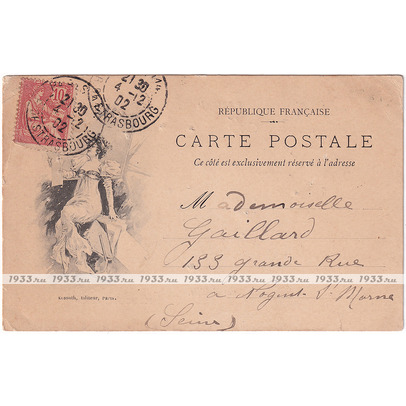 10
21 30
4 -12
02
STRASBOURG
21 30
4 -12
02
STRASBOURG
RÉPUBLIQUE FRANÇAISE
CARTE POSTALE
Ce côté est exclusivement réservé à l'adresse
Mademoiselle
Gaillard
133 grande Rue
1933.ru 1933.ru 1933.ru 1933.ru 1933.ru 1933.ru 1933.ru 1933.ru 1933.ru
a Nogent S. Marne
Éditeur, Paris.
(Seine)